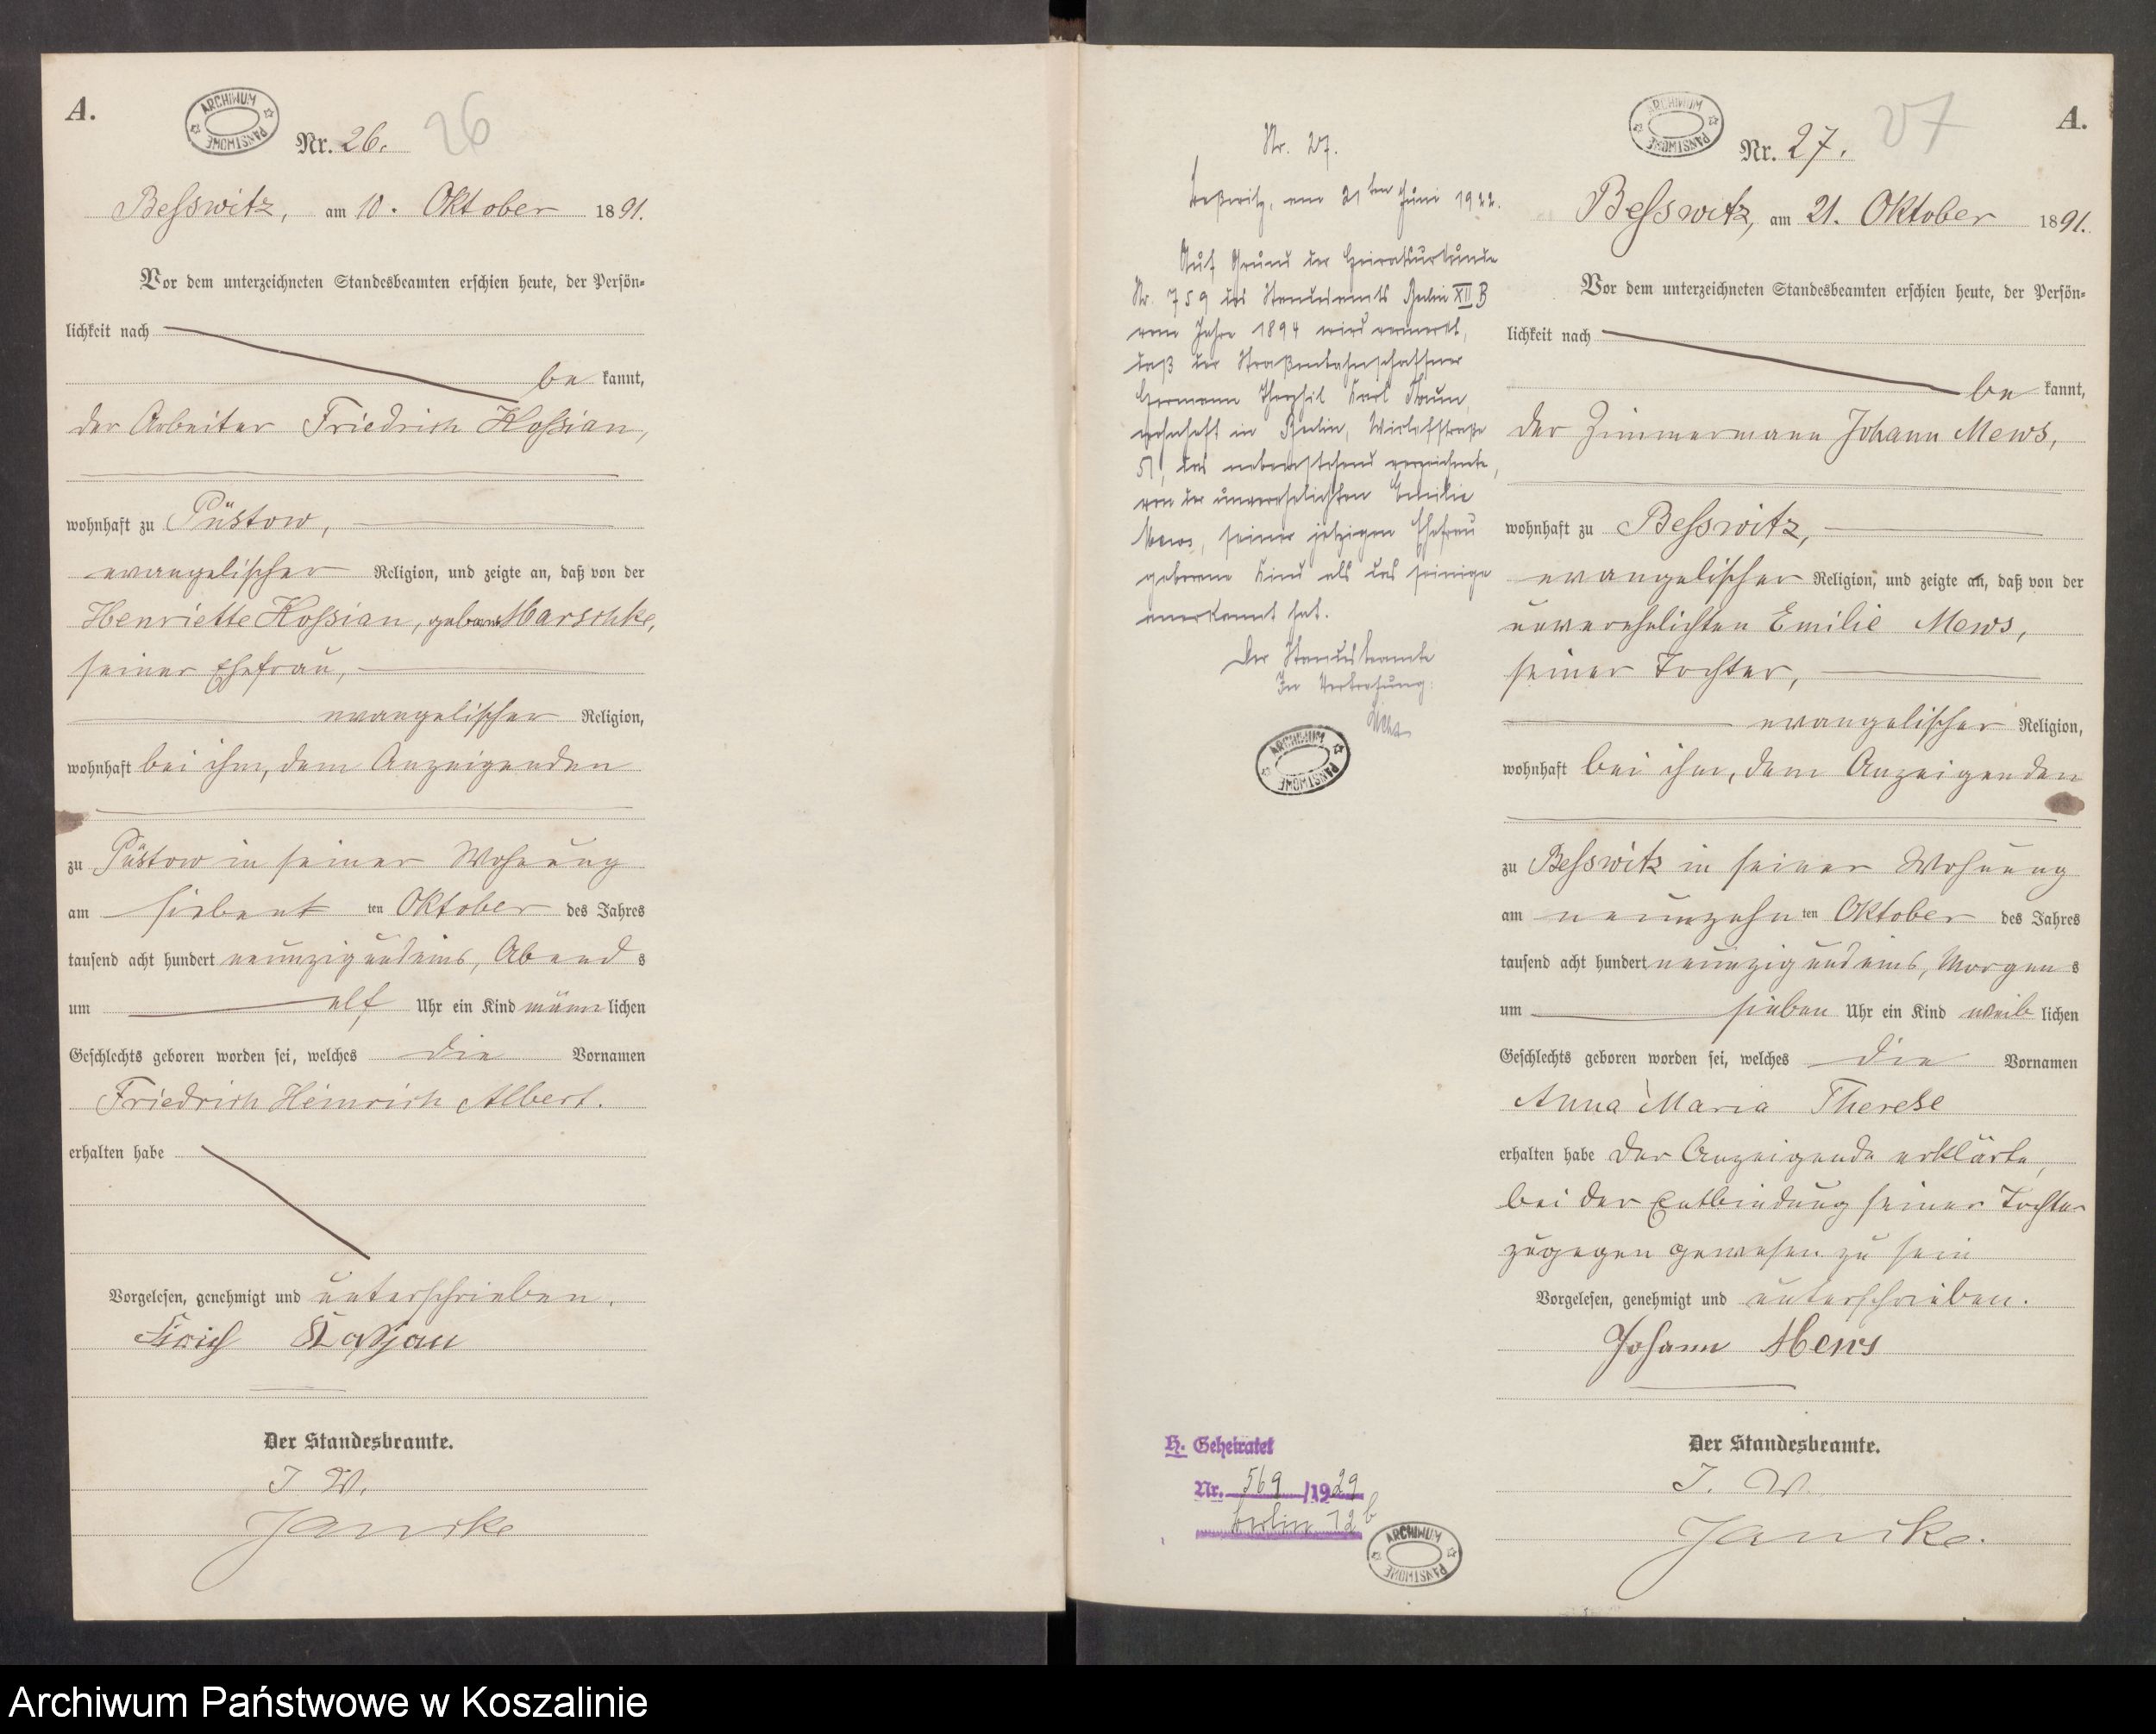 A.
ARCHIWUM PAŃSTWOWE
Nr. 26.
26
Besswitz, am 10. Oktober 1891.
Vor dem unterzeichneten Standesbeamten erschien heute, der Persön-
lichkeit nach
be kannt,
der Arbeiter Friedrich Kossian,
wohnhaft zu Püstow,
evangelischer Religion, und zeigte an, daß von der
Henriette Kossian, geborne Marschke,
seiner Ehefrau,
evangelischer Religion,
wohnhaft bei ihm, dem Anzeigenden
zu Püstow in seiner Wohnung
am siebent ten Oktober des Jahres
tausend acht hundert neunzig und eins, Abend s
um elf Uhr ein Kind männ lichen
Geschlechts geboren worden sei, welches die Vornamen
Friedrich Heinrich Albert.
erhalten habe
Vorgelesen, genehmigt und unterschrieben.
Der Standesbeamte.
I. V.
Janike
Nr. 27.
Beßwitz, am 21ten Juni 1922.
Auf Grund der Heiratsurkunde
Nr. 759 des Standesamts Berlin XII B
vom Jahre 1894 wird vermerkt,
daß der Straßenbahnschaffner
Hermann Theophil Karl
wohnhaft in Berlin,
51, das nebenstehend verzeichnete,
von der unverehelichten Emilie
Mews, seiner jetzigen Ehefrau
geborene Kind als das seinige
anerkannt hat.
Der Standesbeamte
In Vertretung:
ARCHIWUM PAŃSTWOWE
H. Geheiratet
Nr. 569 /1929
Berlin 12b
ARCHIWUM PAŃSTWOWE
ARCHIWUM PAŃSTWOWE
A.
Nr. 27.
27
Besswitz, am 21. Oktober 1891.
Vor dem unterzeichneten Standesbeamten erschien heute, der Persön-
lichkeit nach
be kannt,
der Zimmermann Johann Mews,
wohnhaft zu Besswitz,
evangelischer Religion, und zeigte an, daß von der
unverehelichten Emilie Mews,
seiner Tochter,
evangelischer Religion,
wohnhaft bei ihm, dem Anzeigenden
zu Besswitz in seiner Wohnung
am neunzehn ten Oktober des Jahres
tausend acht hundert neunzig und eins, Morgen s
um sieben Uhr ein Kind weib lichen
Geschlechts geboren worden sei, welches die Vornamen
Anna Maria Therese
erhalten habe der Anzeigende erklärte,
bei der Entbindung seiner Tochter
zugegen gewesen zu sein
Vorgelesen, genehmigt und unterschrieben.
Johann Mews
Der Standesbeamte.
I. V.
Janike.
Archiwum Państwowe w Koszalinie